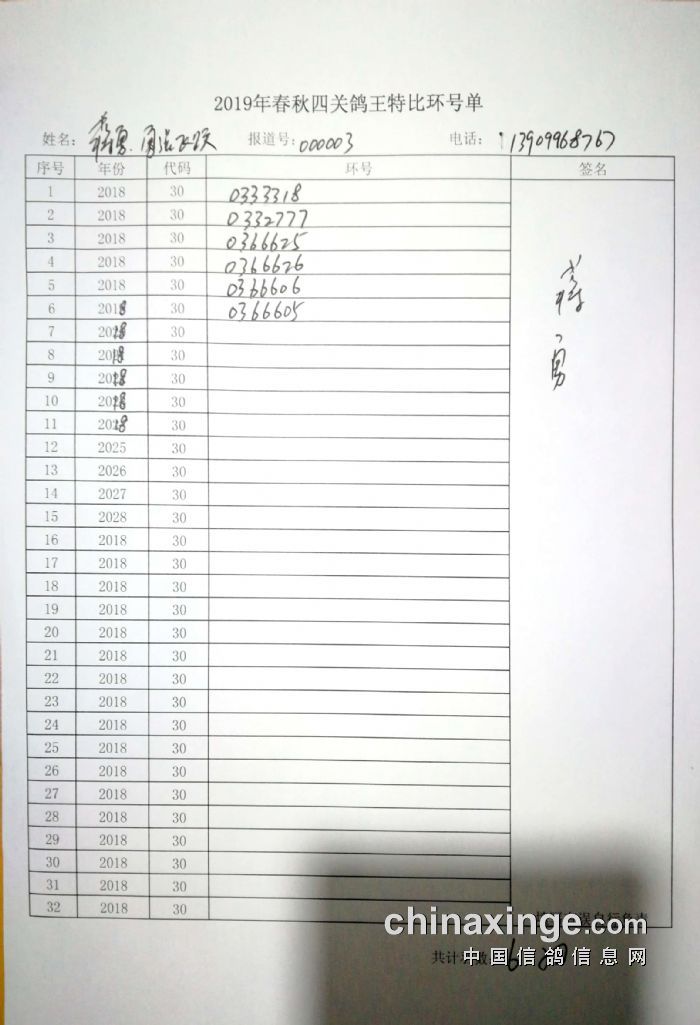 2019年春秋四关鸽王特比环号单
姓名: 蒋勇 报道号: 000003 电话: 13909968767
序号 年份 代码 环号 签名
1 2018 30 0333318
2 2018 30 0332777
3 2018 30 0366625
4 2018 30 0366626
5 2018 30 0366606
6 2018 30 0366605
7 2018 30
8 2018 30
9 2018 30
10 2018 30
11 2018 30
12 2025 30
13 2026 30
14 2027 30
15 2028 30
16 2018 30
17 2018 30
18 2018 30
19 2018 30
20 2018 30
21 2018 30
22 2018 30
23 2018 30
24 2018 30
25 2018 30
26 2018 30
27 2018 30
28 2018 30
29 2018 30
30 2018 30
31 2018 30
32 2018 30
蒋勇
自行负责
chinaxinge.com
共计 数: 6
中国信鸽信息网